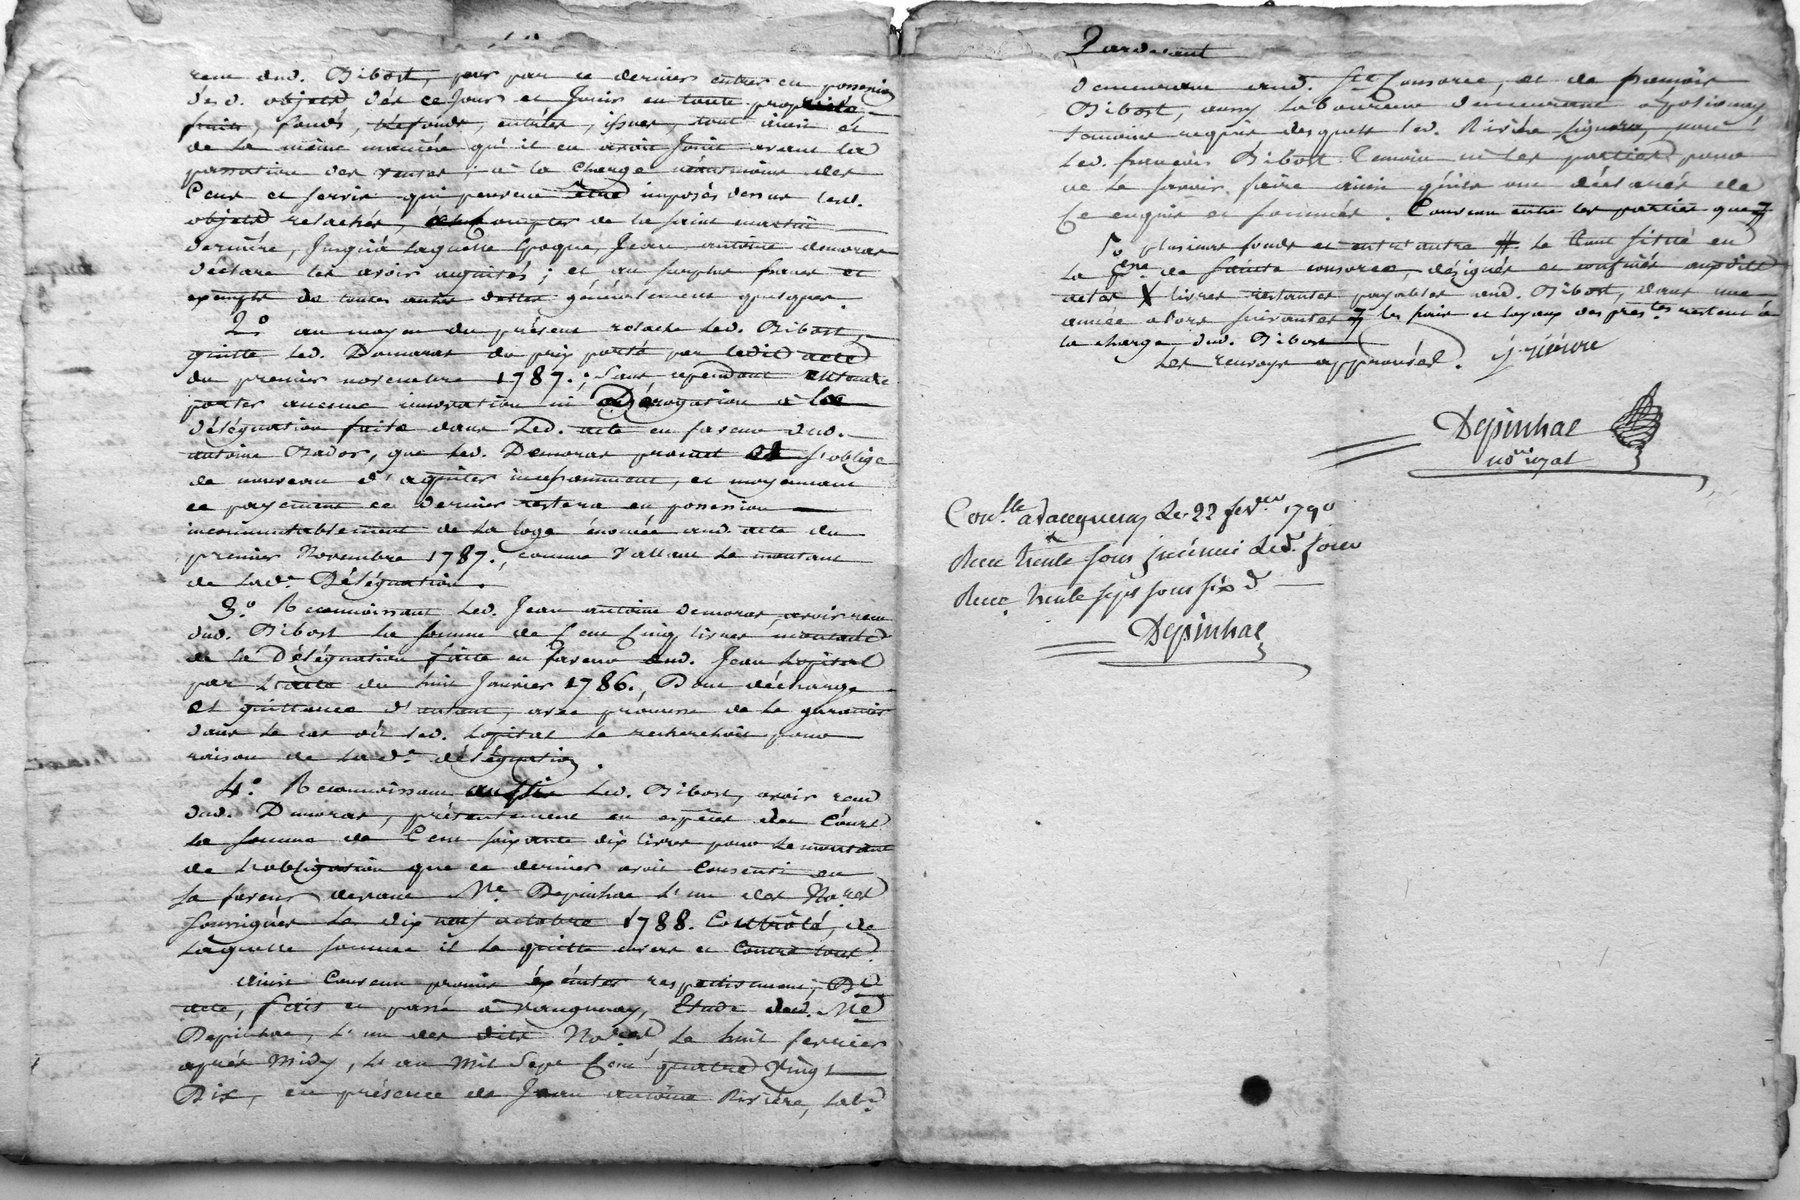 dud. Bibost, pour par ce dernier entrer en possession
desd. objets dés ce jour et Jouir en toute propriété
fruits, fonds, tréfonds, entrées, issues, tout ainsi et
de la même manière qu'il en avoit Jouit avant la
passation des ventes ; à la charge néantmoins des
Cens et servis qui peuvent être imposés dessus lesd.
objets relachés, à compter de la saint martin
dernière, Jusqu'à laquelle Epoque, Jean antoine demoras
déclare les avoir aquités ; et au surplus francs et
exempts de toutes autres dettes généralement quelques.
2.° au moyen du présent relache led. Bibost,
quitte led. Demoras du prix porté par ledit acte
du premier novembre 1787. ; sans cependant entendre
porter aucune innovation ni dérogation à la
délégation faite dans led. acte en faveur dud.
antoine Bador, que led. Demoras promet et s'oblige
de nouveau d'aquiter incessamment, et moyennant
ce payement ce dernier restera en possession
incommutablement de la loge énoncée aud. acte du
premier Novembre 1787., comme vallant le montant
de lad.e Délégation.
3.° Reconnoissant led. Jean antoine demoras, avoir reçu
dud. Bibost la somme de Cent Cinq livres montant
de la Délégation faite en faveur dud. Jean Lopital
par l'acte du huit Janvier 1786., Dont décharge
et quittance d'autant, avec promesse de le garantir
dans le cas où led. Lopital le rechercheroit pour
raison de lad.e délégation.
4.° Reconnoissant aussi led. Bibost, avoir reçu
dud. Demoras, présentement en espèces de Cours
la somme de Cent soixante dix livres pour le montant
de l'obligation que ce dernier avoit Consenti en
sa faveur devant M.e Depinhac l'un des No.res
soussignés le dix neuf octobre 1788. Controlé, de
laquelle somme il le quitte envers et Contre tous.
ainsi Convenu promis éxécuter respectivement, Dt
acte, fait et passé à Vaugneray, Etude dud. M.e
Depinhac, l'un des dits No.res le huit fevrier
après Midy, l'an Mil Sept Cent quatre Vingt
Dix, en présence de Jean antoine Rivière, lab.r
demeurant aud. S.te Consorce, et de françois
Bibost, aussy laboureur demeurant a polionay
temoins requis desquels led. Rivière signera, non
led. françois Bibost temoin ni les parties pour
ne le savoir faire ainsi qu'ils ont déclaré de
ce enquis et sommés. Convenu entre les parties que
plusieurs fonds et entr'autre # le tout situé en
la p.sse de sainte consorce, désignés et confinés auxdits
actes X livres restantes payables aud. Bibost, dans une
année alors suivante les frais et loyaux des présentes restent à
la charge dud. Bibost
Les renvoys approuvés. J. riviere
Depinhac
no.re royal
Con.lle a Vaugneray Le 22 fev.er 1790
Recu trente sous
Recu trente sept sous six d
Depinhac